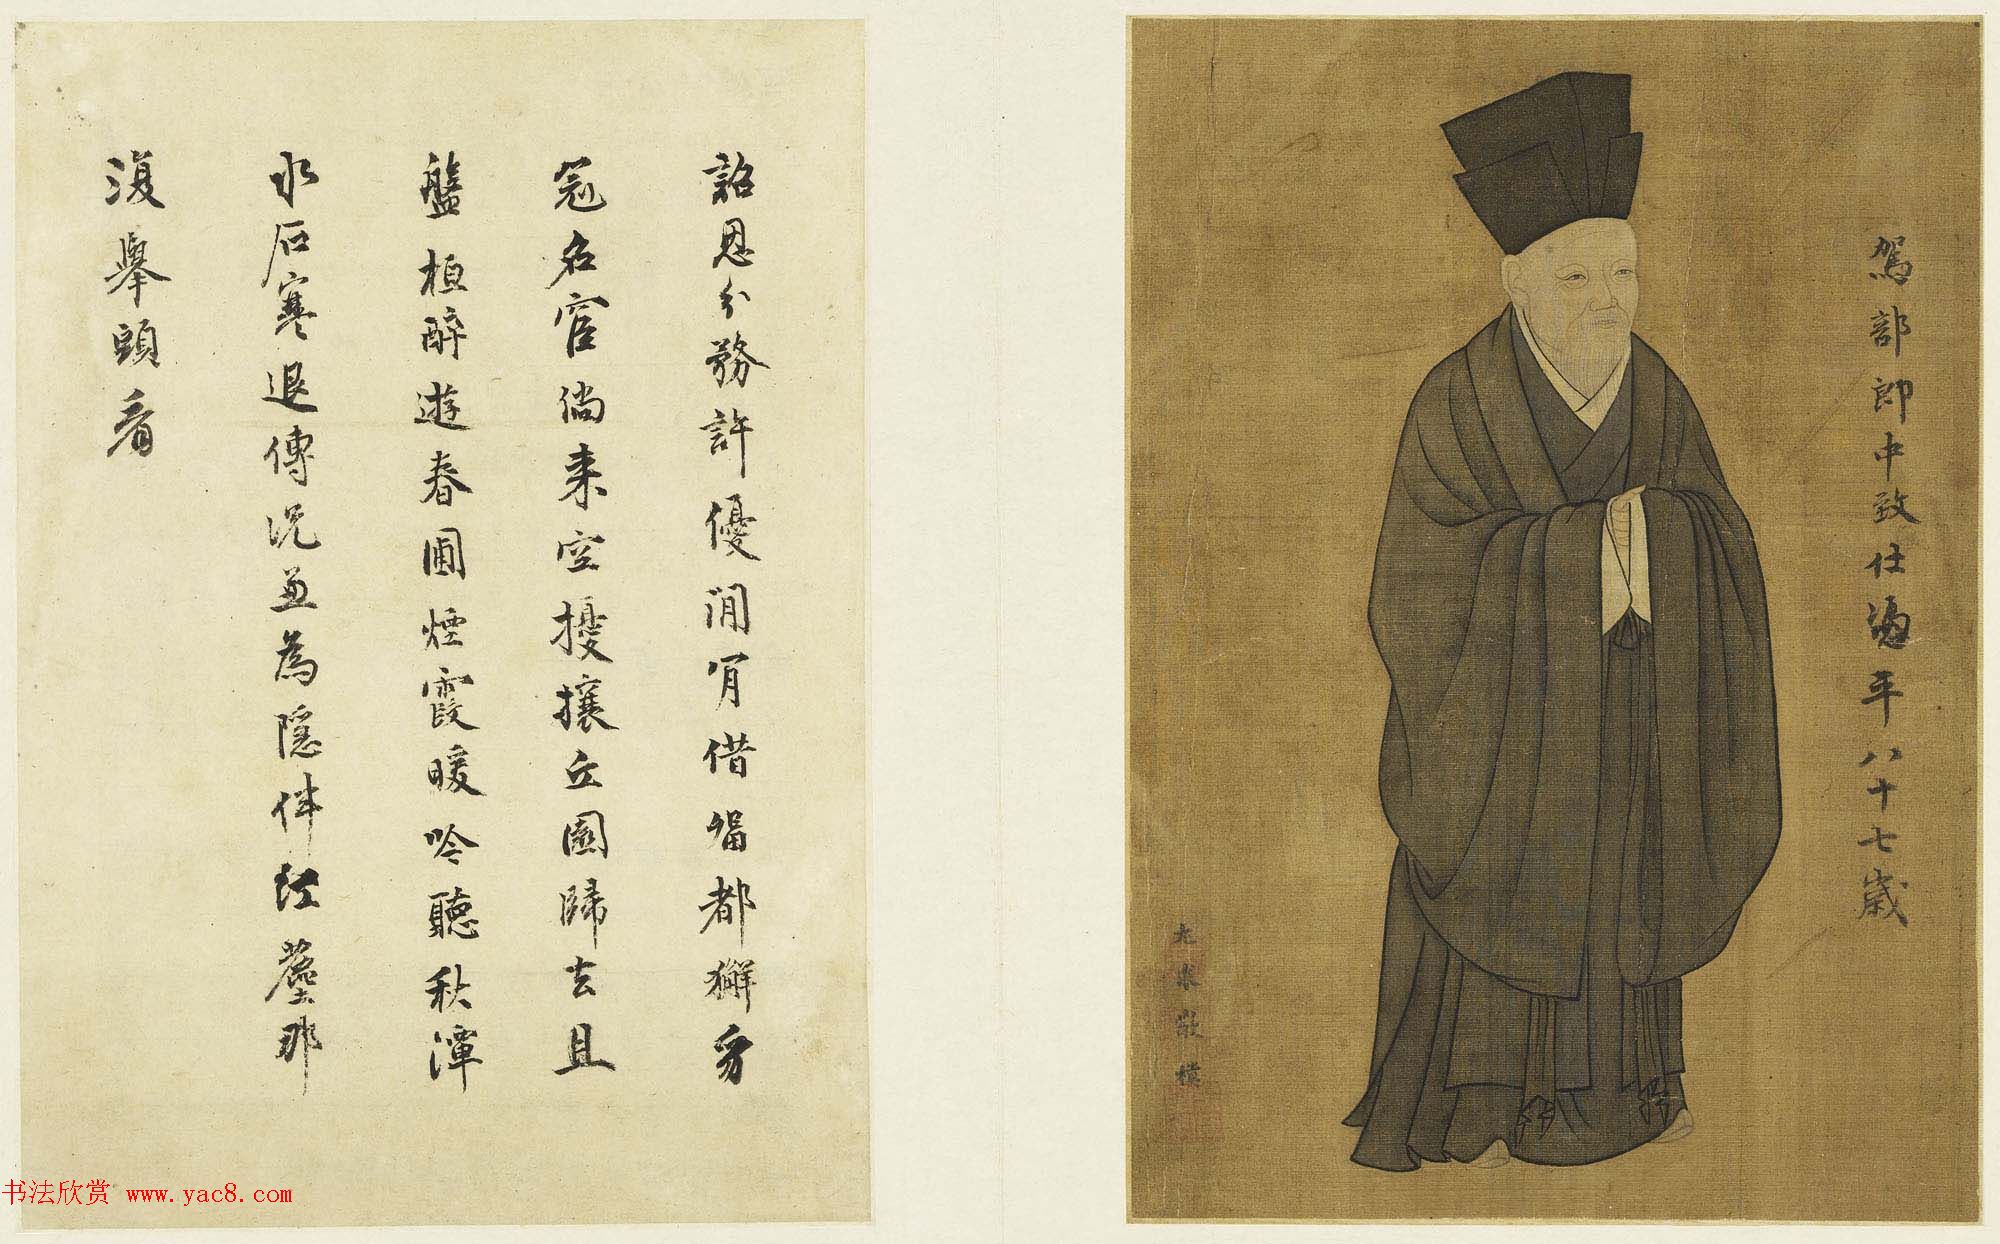 駕部郎中致仕馮平八十七歲
尤求敬模
詔恩分務許優閒肎借留都獬豸
冠名宦倘来空擾攘丘園歸去且
盤桓醉遊春圃煙霞暖吟聽秋潭
水石寒退傅况兼為隱伴紅塵那
復舉頭看
书法欣赏 www.yac8.com